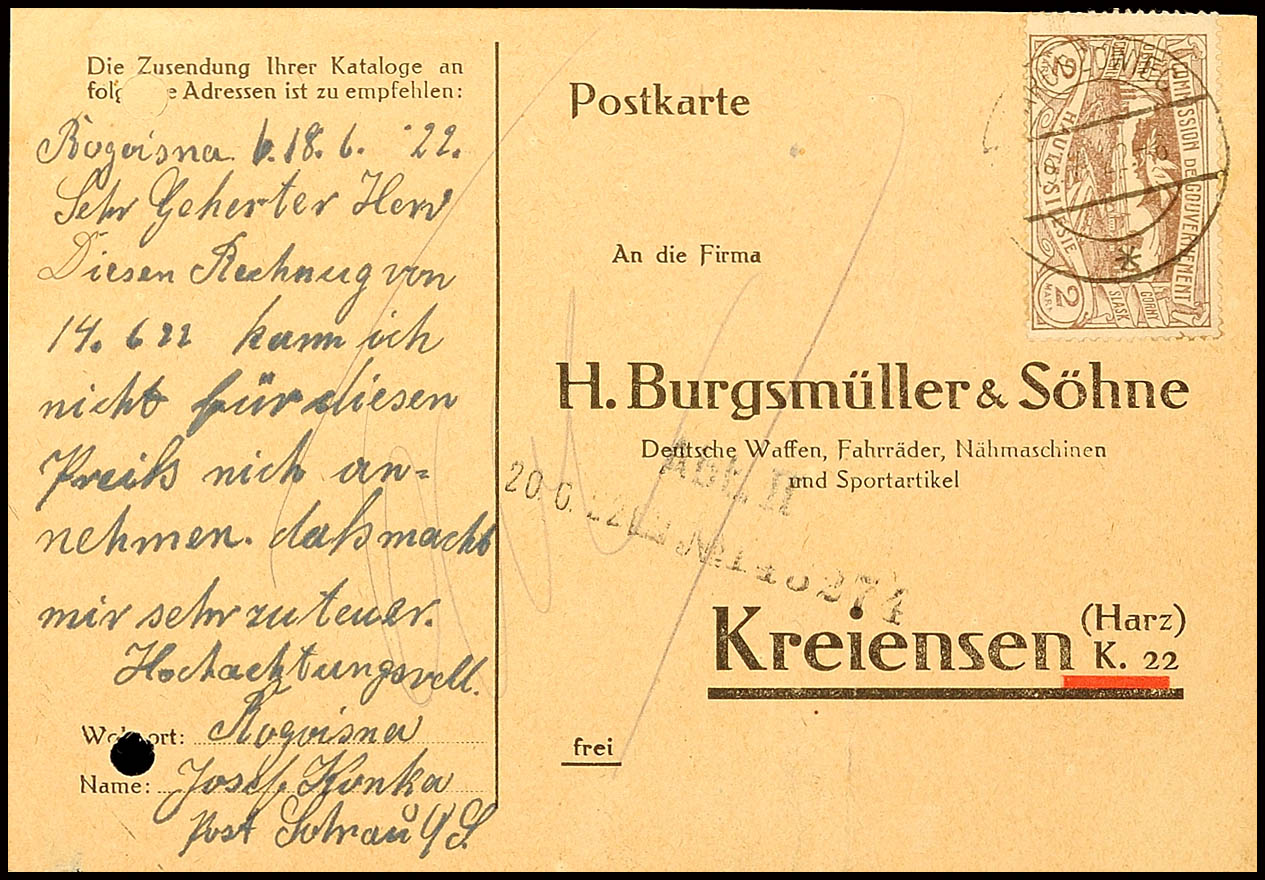 Die Zusendung Ihrer Kataloge an
Adressen ist zu empfehlen:
Rogoisna 18. 6. 22.
Sehr Geherter Herr
Diesen Rechnug von
14. 6 22 kann ich
nicht für diesen
Preiß nich an-
nehmen. daß macht
mir sehr zu teuer.
Hochachtungsvell.
Wohnort: Rogoisna
Name: Josef Konka
Post Sohrau O/S.
Postkarte
COMMISSION DE GOUVERNEMENT
HAUTE SILESIE
2
MARK
GORNY
SLASK
2
MARK
An die Firma
H. Burgsmüller & Söhne
Deutsche Waffen, Fahrräder, Nähmaschinen
und Sportartikel
Abt. II
20. 6. 22
Kreiensen (Harz)
K. 22
frei